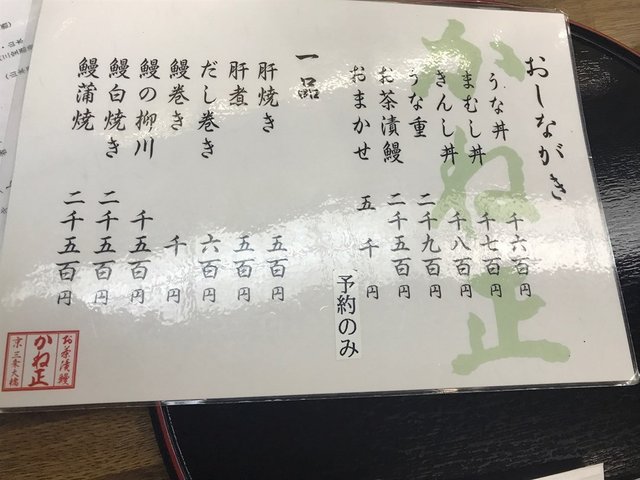 かね正
おしながき
うな丼 千六百円
まむし丼 千七百円
きんし丼 千八百円
うな重 二千九百円
お茶漬鰻 二千五百円
おまかせ 五千円
予約のみ
一品
肝焼き 五百円
肝煮 五百円
だし巻き 六百円
鰻巻き 千円
鰻の柳川 千五百円
鰻白焼き 二千五百円
鰻蒲焼 二千五百円
お茶漬鰻
かね正
京三条大橋